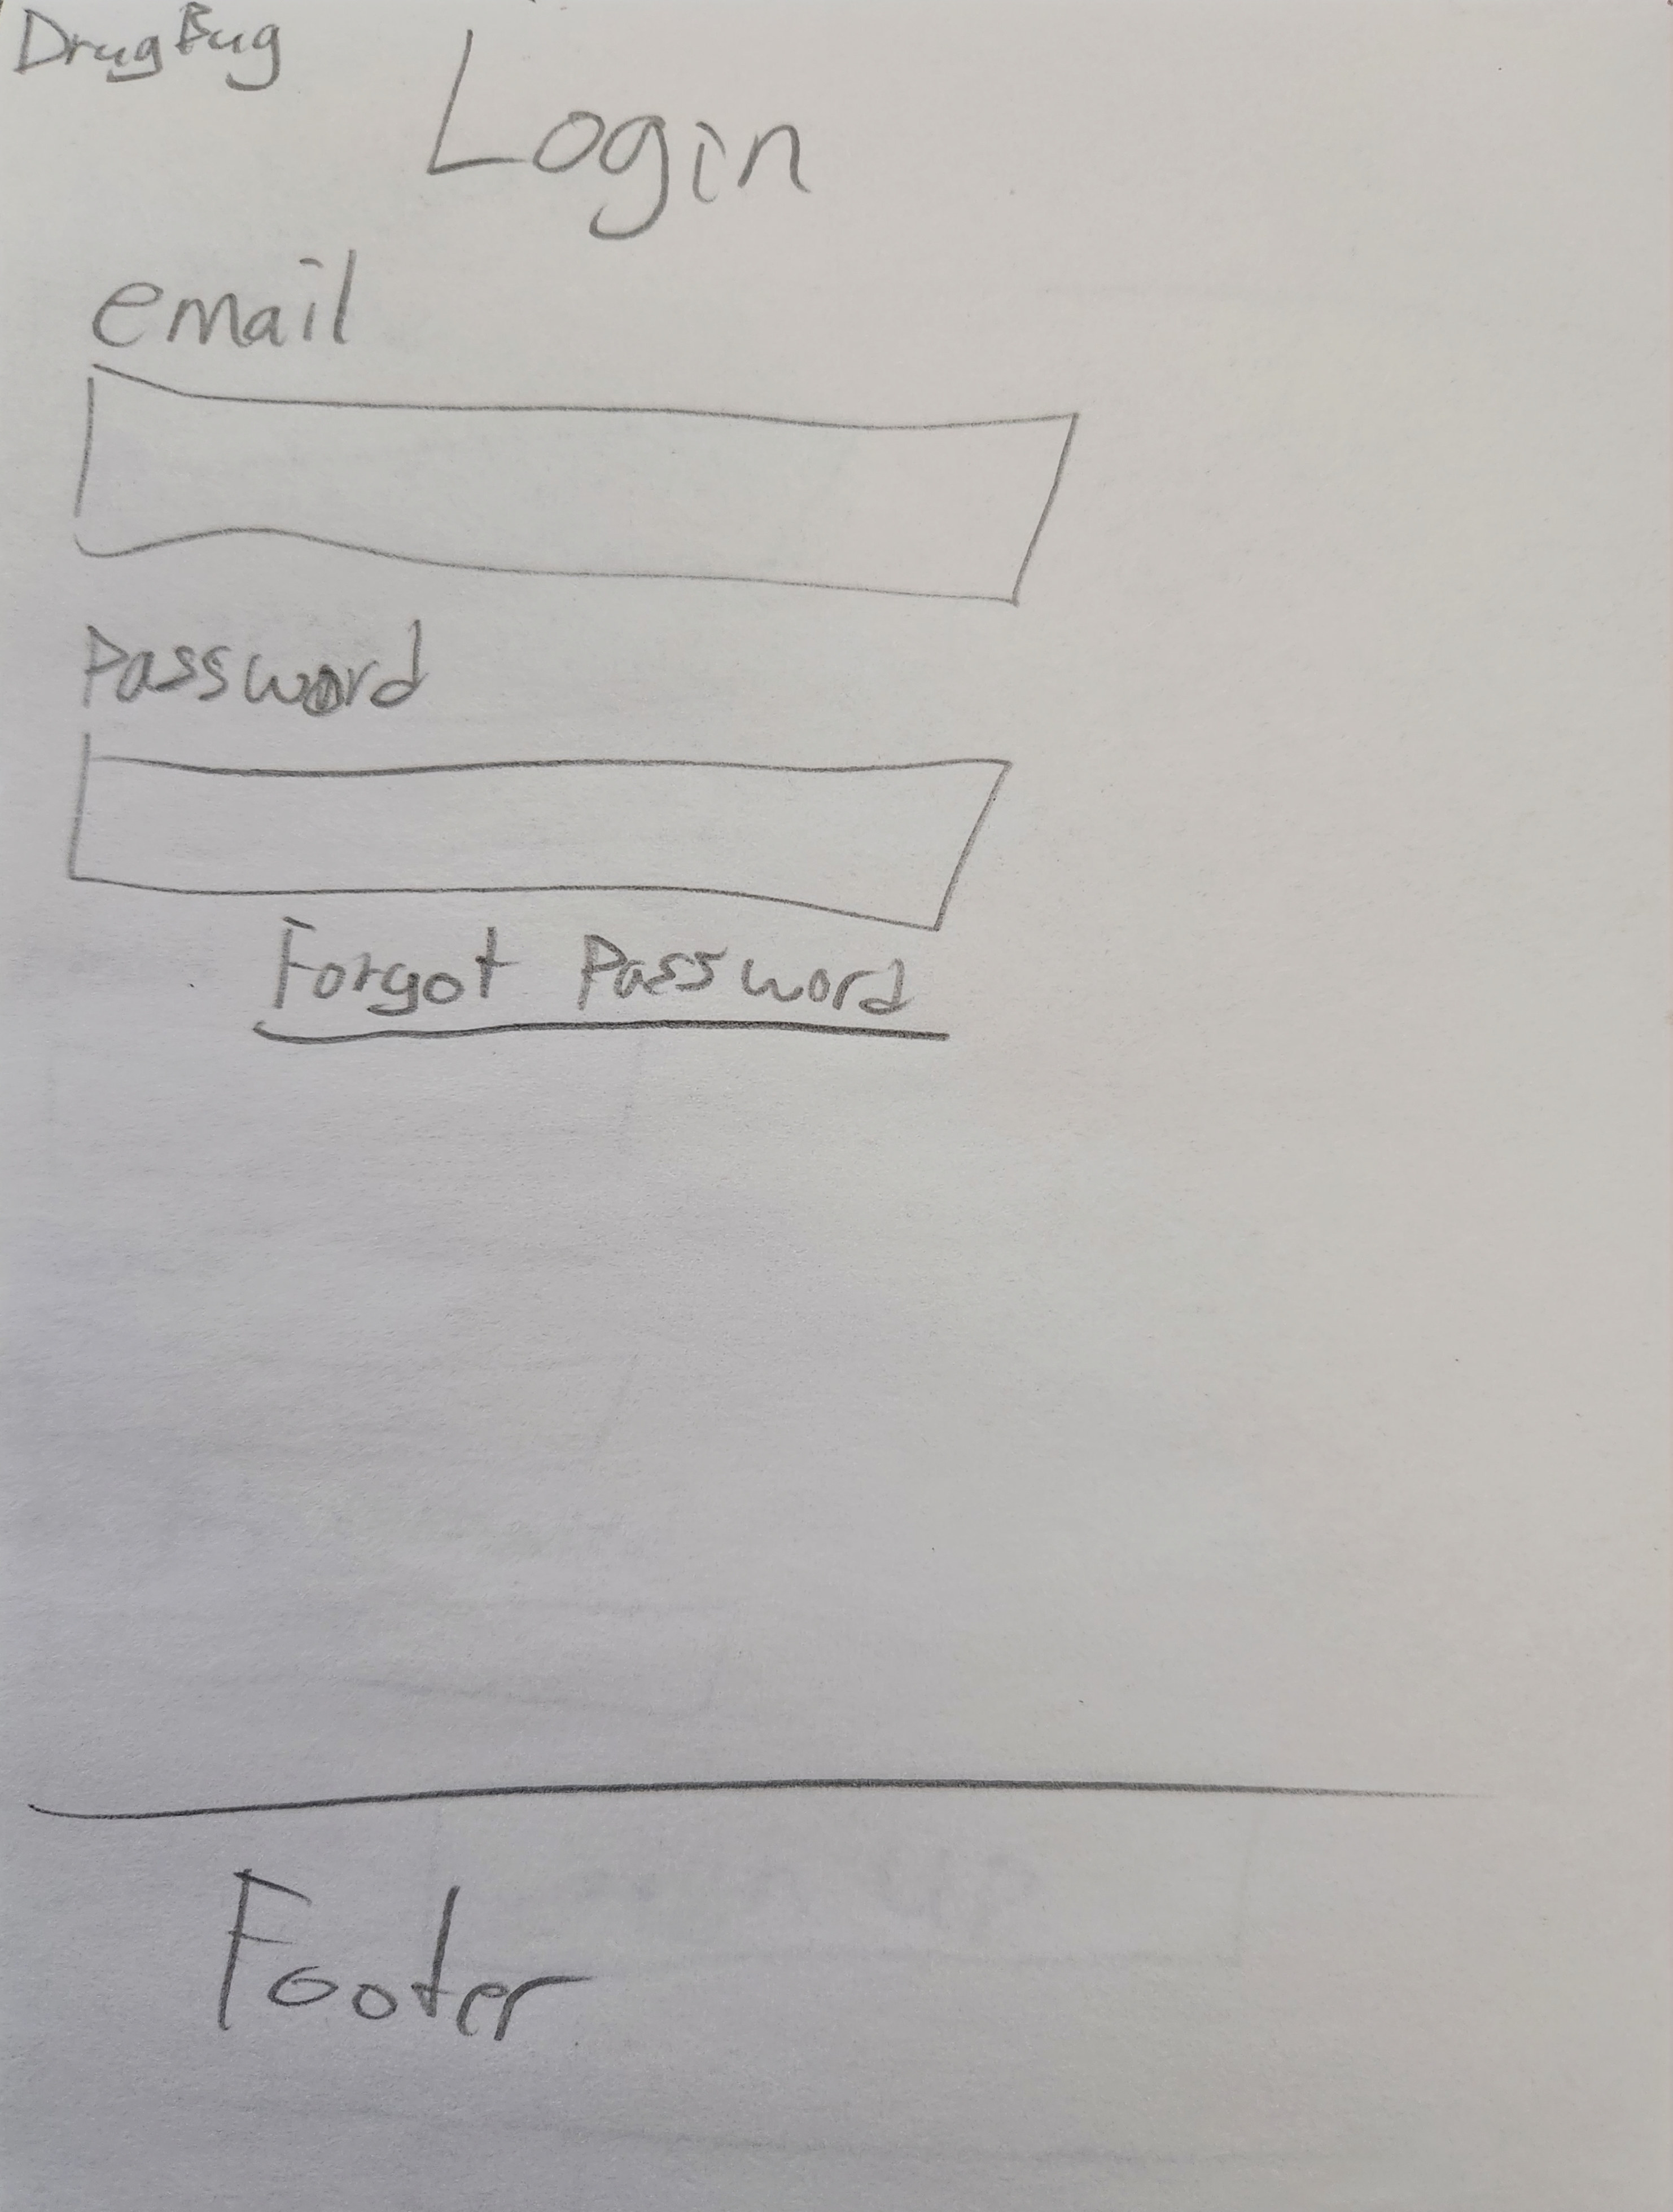 DrugBug
Login
email
Password
Forgot Password
Footer